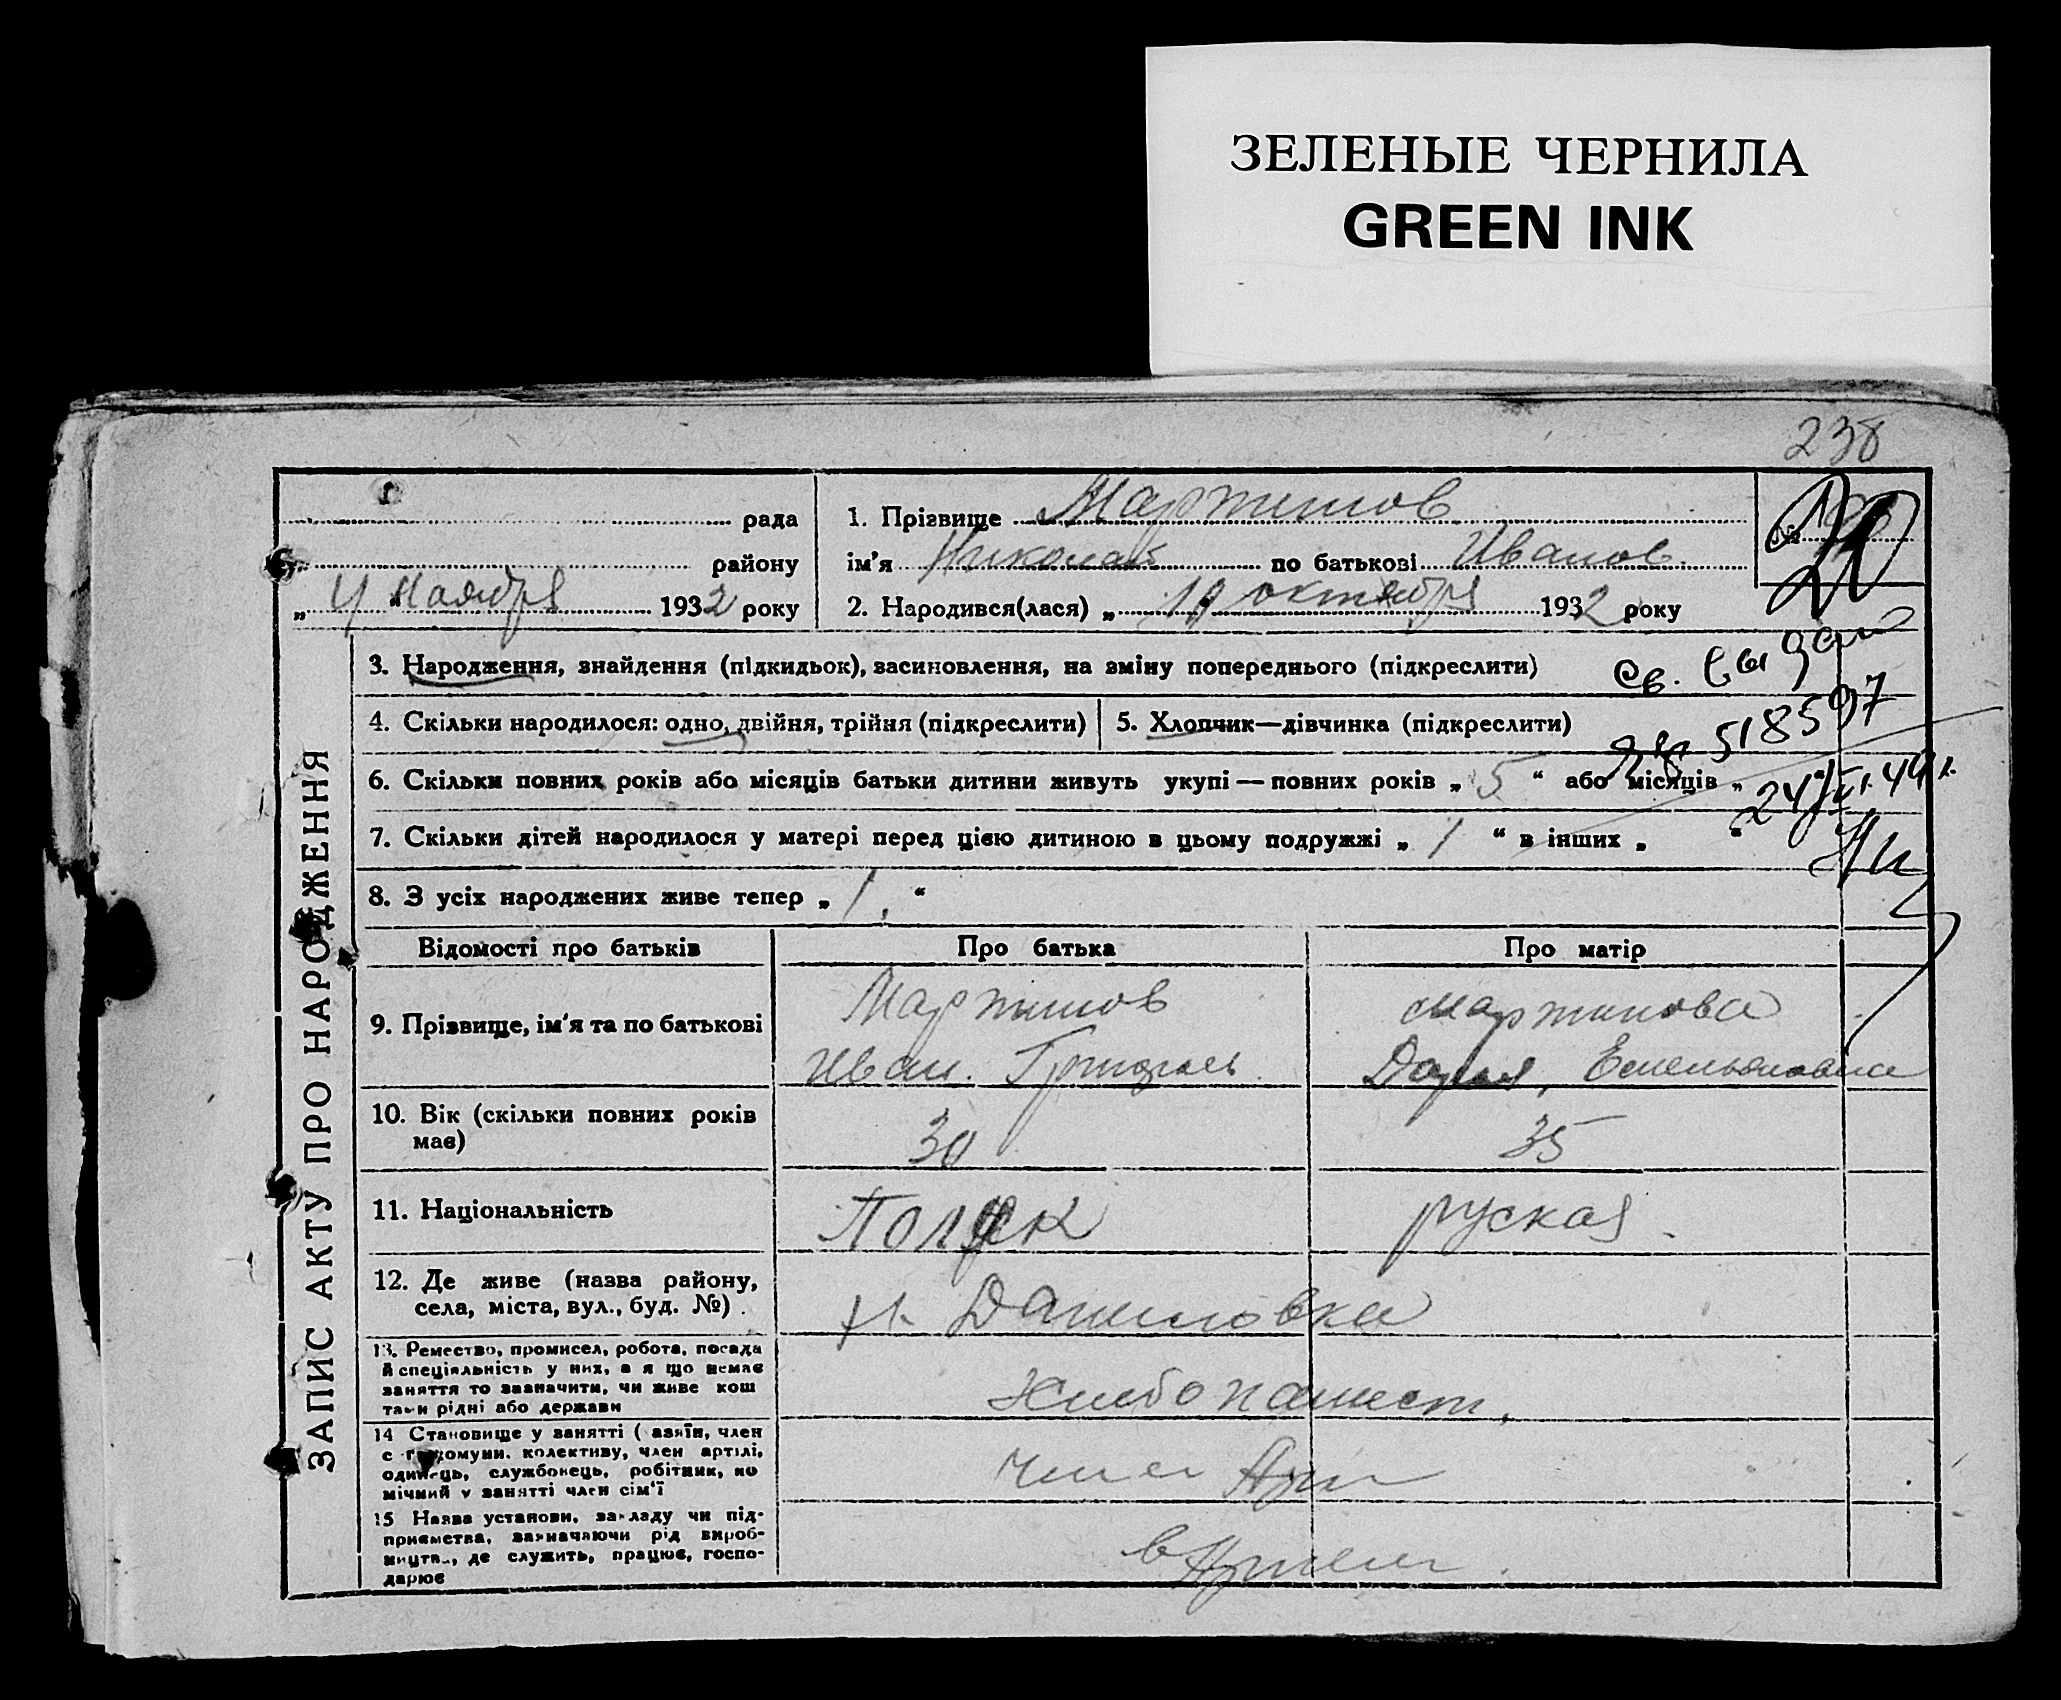 ЗЕЛЕНЫЕ ЧЕРНИЛА
GREEN INK
238
рада
району
„ 4 ноября 1932 року
1. Прізвище Мартинов
ім'я Николай по батькові Иванов.
2. Народився(лася) „ 10 октября 1932 року
№
ЗАПИС АКТУ ПРО НАРОДЖЕННЯ
3. Народження, знайдення (підкидьок), засиновлення, на зміну попереднього (підкреслити)
Св. выдано
4. Скільки народилося: одно, двійня, трійня (підкреслити)
5. Хлопчик—дівчинка (підкреслити)
518597
6. Скільки повних років або місяців батьки дитини живуть укупі — повних років „ 5 “ або місяців „ “
24/VI.44 г.
7. Скільки дітей народилося у матері перед цією дитиною в цьому подружжі „ 1 “ в інших „ “
8. З усіх народжених живе тепер „ 1. “
Відомості про батьків Про батька Про матір
9. Прізвище, ім'я та по батькові
Мартинов
Иван. Григорьев.
Мартинова
Дарья, Емельяновна
10. Вік (скільки повних років має)
30
35
11. Національність
Поляк
руская.
12. Де живе (назва району,
села, міста, вул., буд. №).
х. Даниловка
13. Ремество, промисел, робота, посада
й спеціяльність у них, а я що немає
заняття то зазначити, чи живе кош
тами рідні або держави
Хлебопашест.
14 Становище у занятті ( азяїн, член
с г. комуни. колективу, член артілі,
одинець, службовець, робітник, по
мічний у занятті член сім'ї
член Арт
15 Назва установи, закладу чи під-
приємства, зазначаючи рід вироб-
ництва, де служить, працює, госпо-
дарює
в Артели.